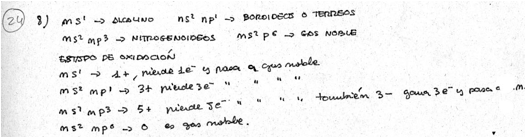 24 8) ms¹ → ALCALINO ns² np¹ → BOROIDEOS O TERREOS
ms² mp3 → NITROGENOIDEOS ms² p6 → GAS NOBLE
ESTADO DE OXIDACIÓN
ms¹ → 1+, pierde 1e⁻ y pasa a gas noble
ms² mp¹ → 3+ pierde 3e⁻ " " " "
ms² mp3 → 5+ pierde 5e⁻ " " " " también 3- gana 3e⁻ y pasa a
ms² mp6 → 0 es gas noble.